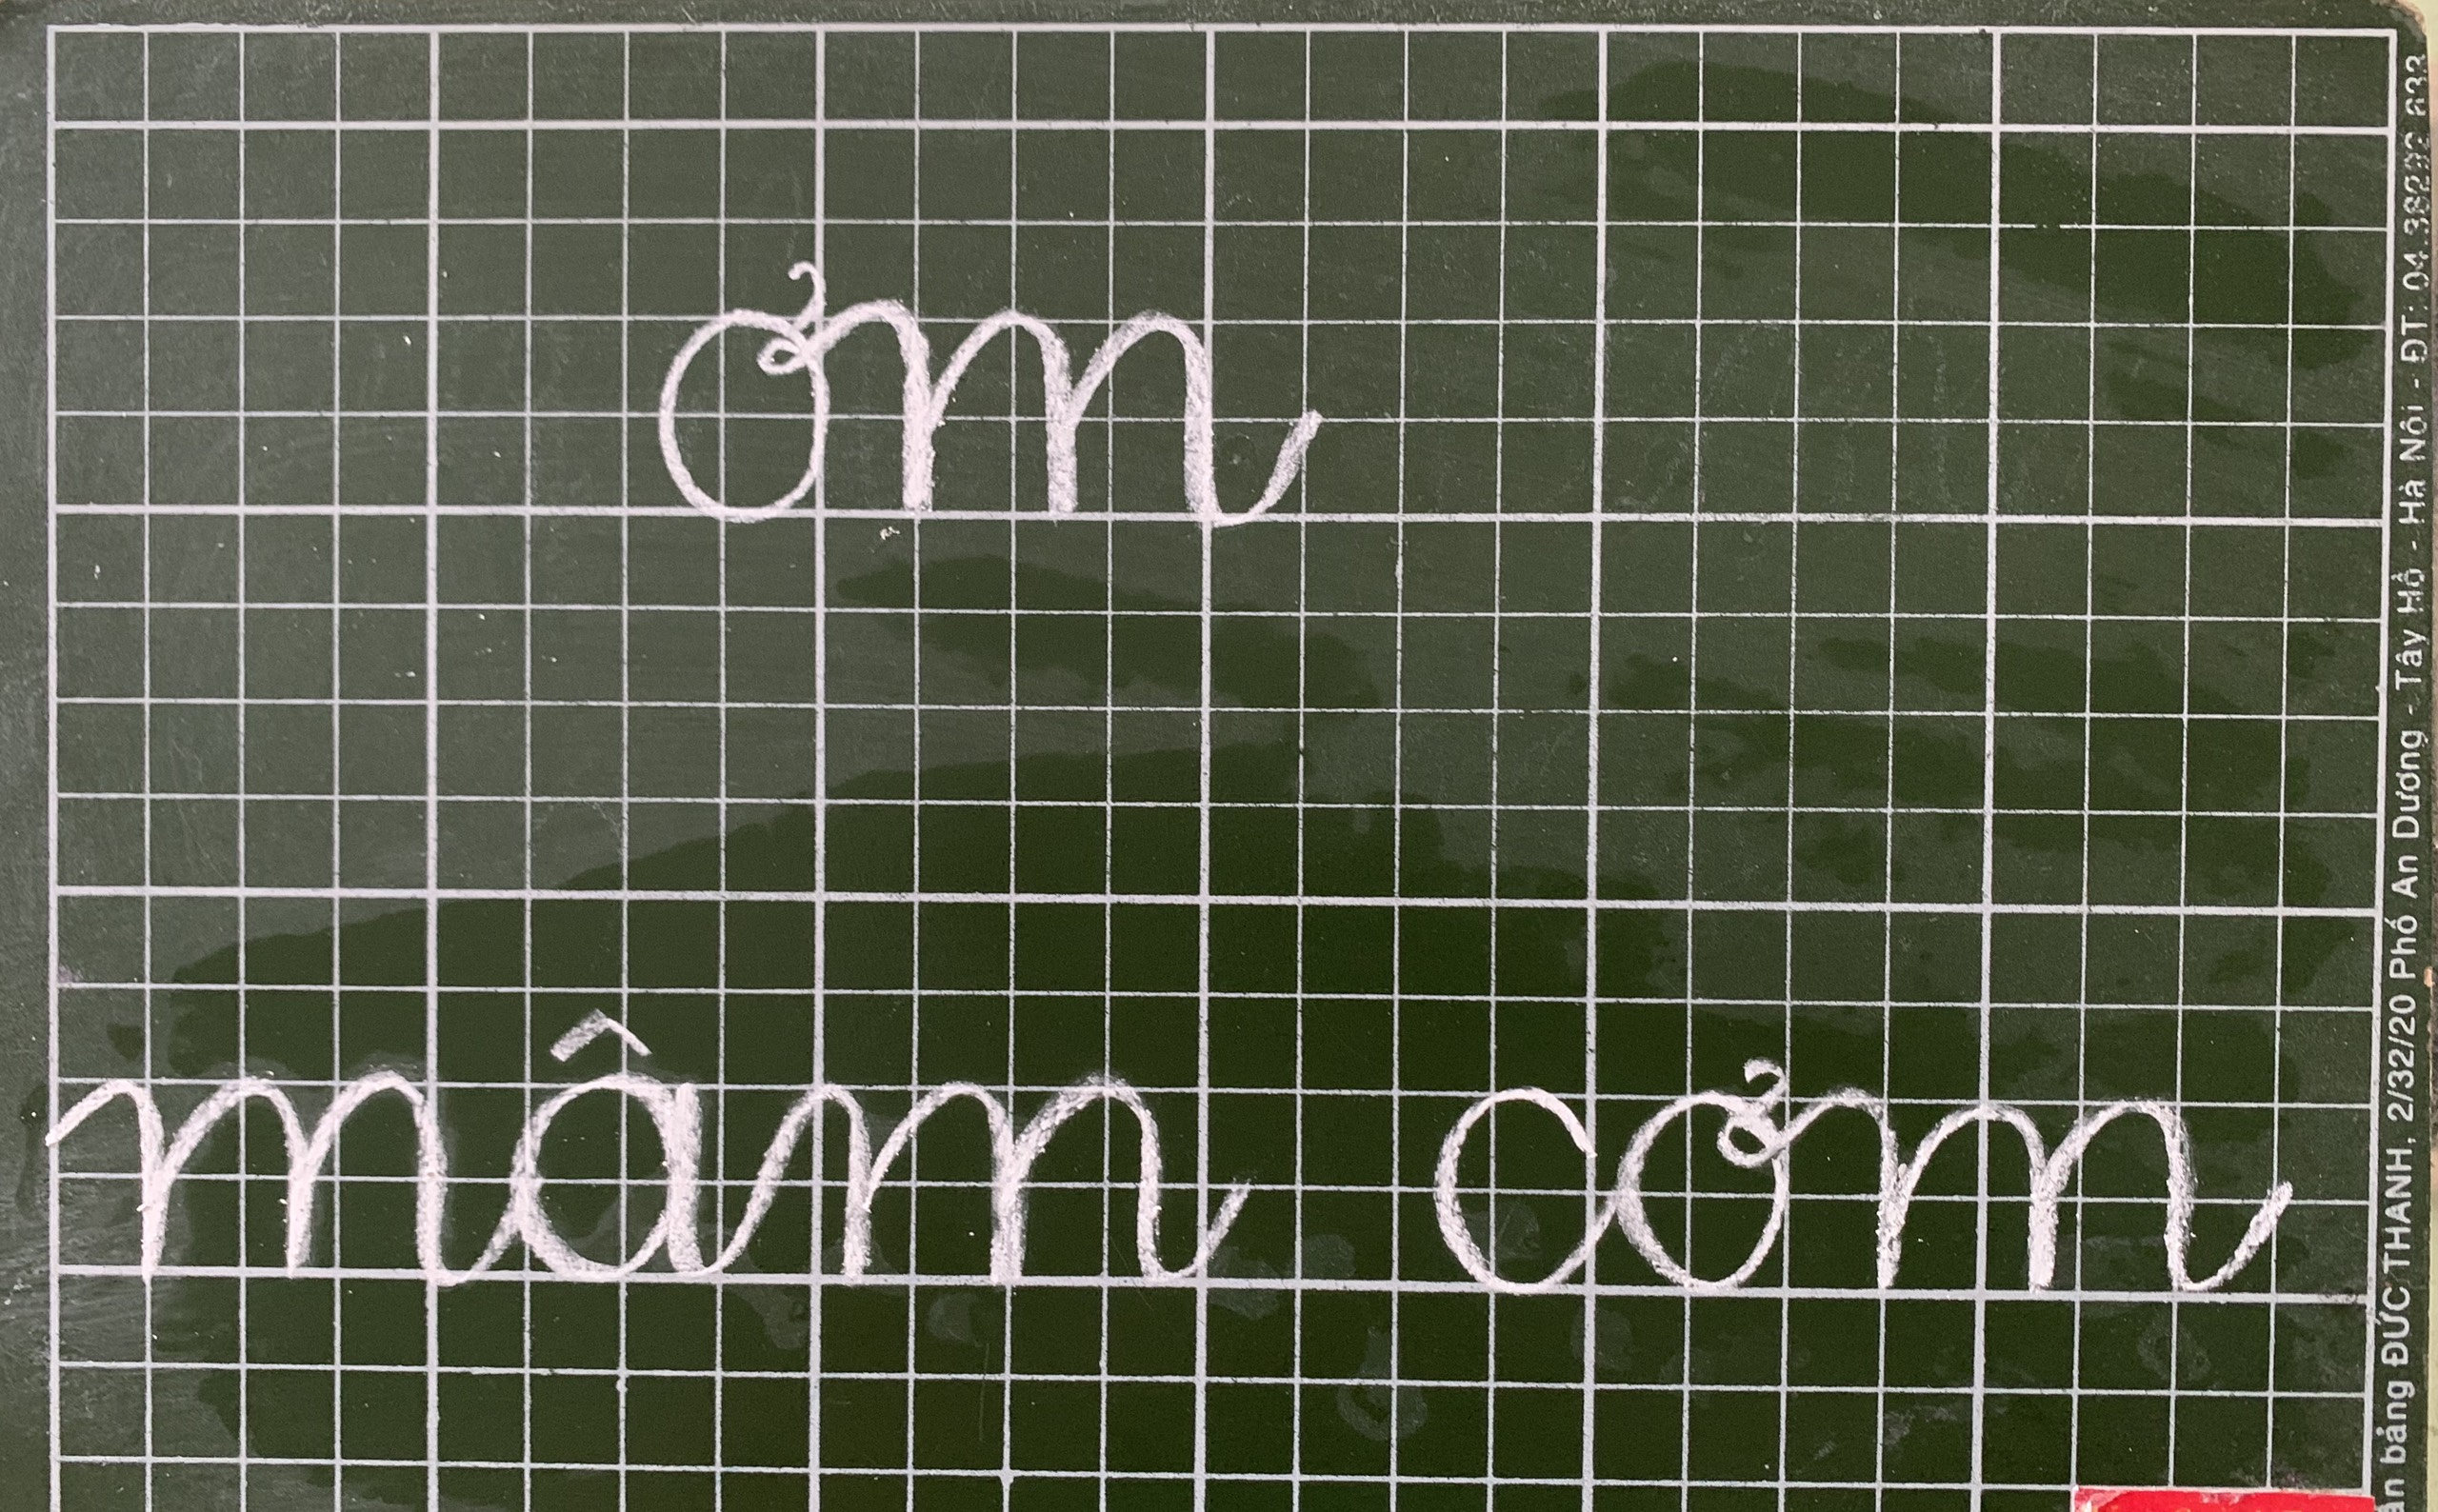 ơm
mâm cơm
n bảng ĐỨC THANH, 2/32/20 Phố An Dương - Tây Hồ - Hà Nội - ĐT: 04.38292 633